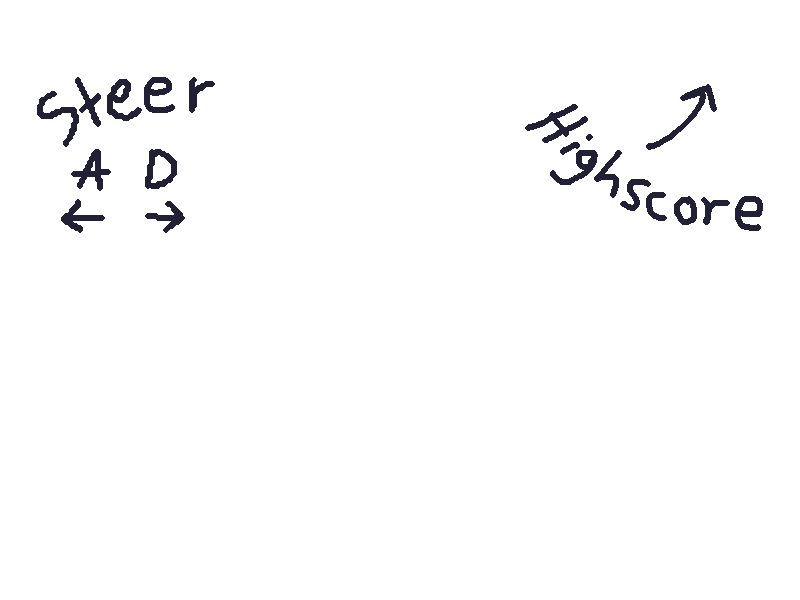 steer
A D
Highscore